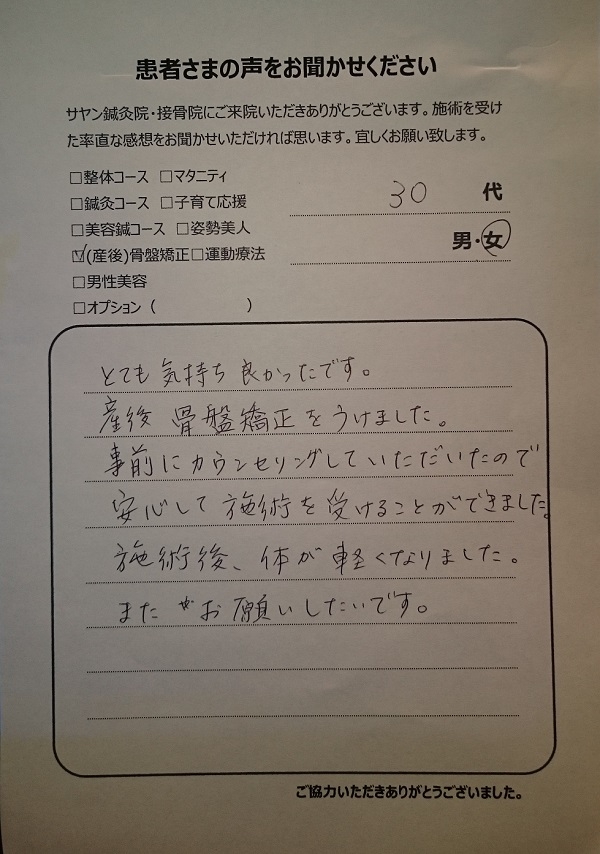 患者さまの声をお聞かせください
サヤン鍼灸院・接骨院にご来院いただきありがとうございます。施術を受け
た率直な感想をお聞かせいただければ思います。宜しくお願い致します。
□整体コース □マタニティ
□鍼灸コース □子育て応援
□美容鍼コース □姿勢美人
☑(産後)骨盤矯正□運動療法
□男性美容
□オプション（ ）
30 代
男・女
とても気持ち良かったです。
産後 骨盤矯正をうけました。
事前にカウンセリングしていただいたので
安心して施術を受けることができました。
施術後、体が軽くなりました。
また お願いしたいです。
ご協力いただきありがとうございました。